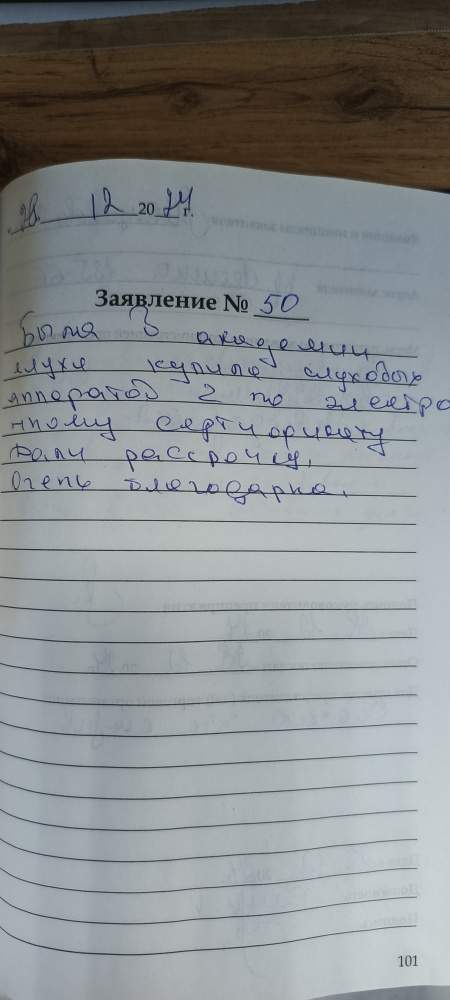 28. 12 2024 г.
Заявление № 50
Была в академии
слуха купила слуховых
аппаратов 2 по электро
нному сертификату
дали рассрочку,
Очень благодарна.
101